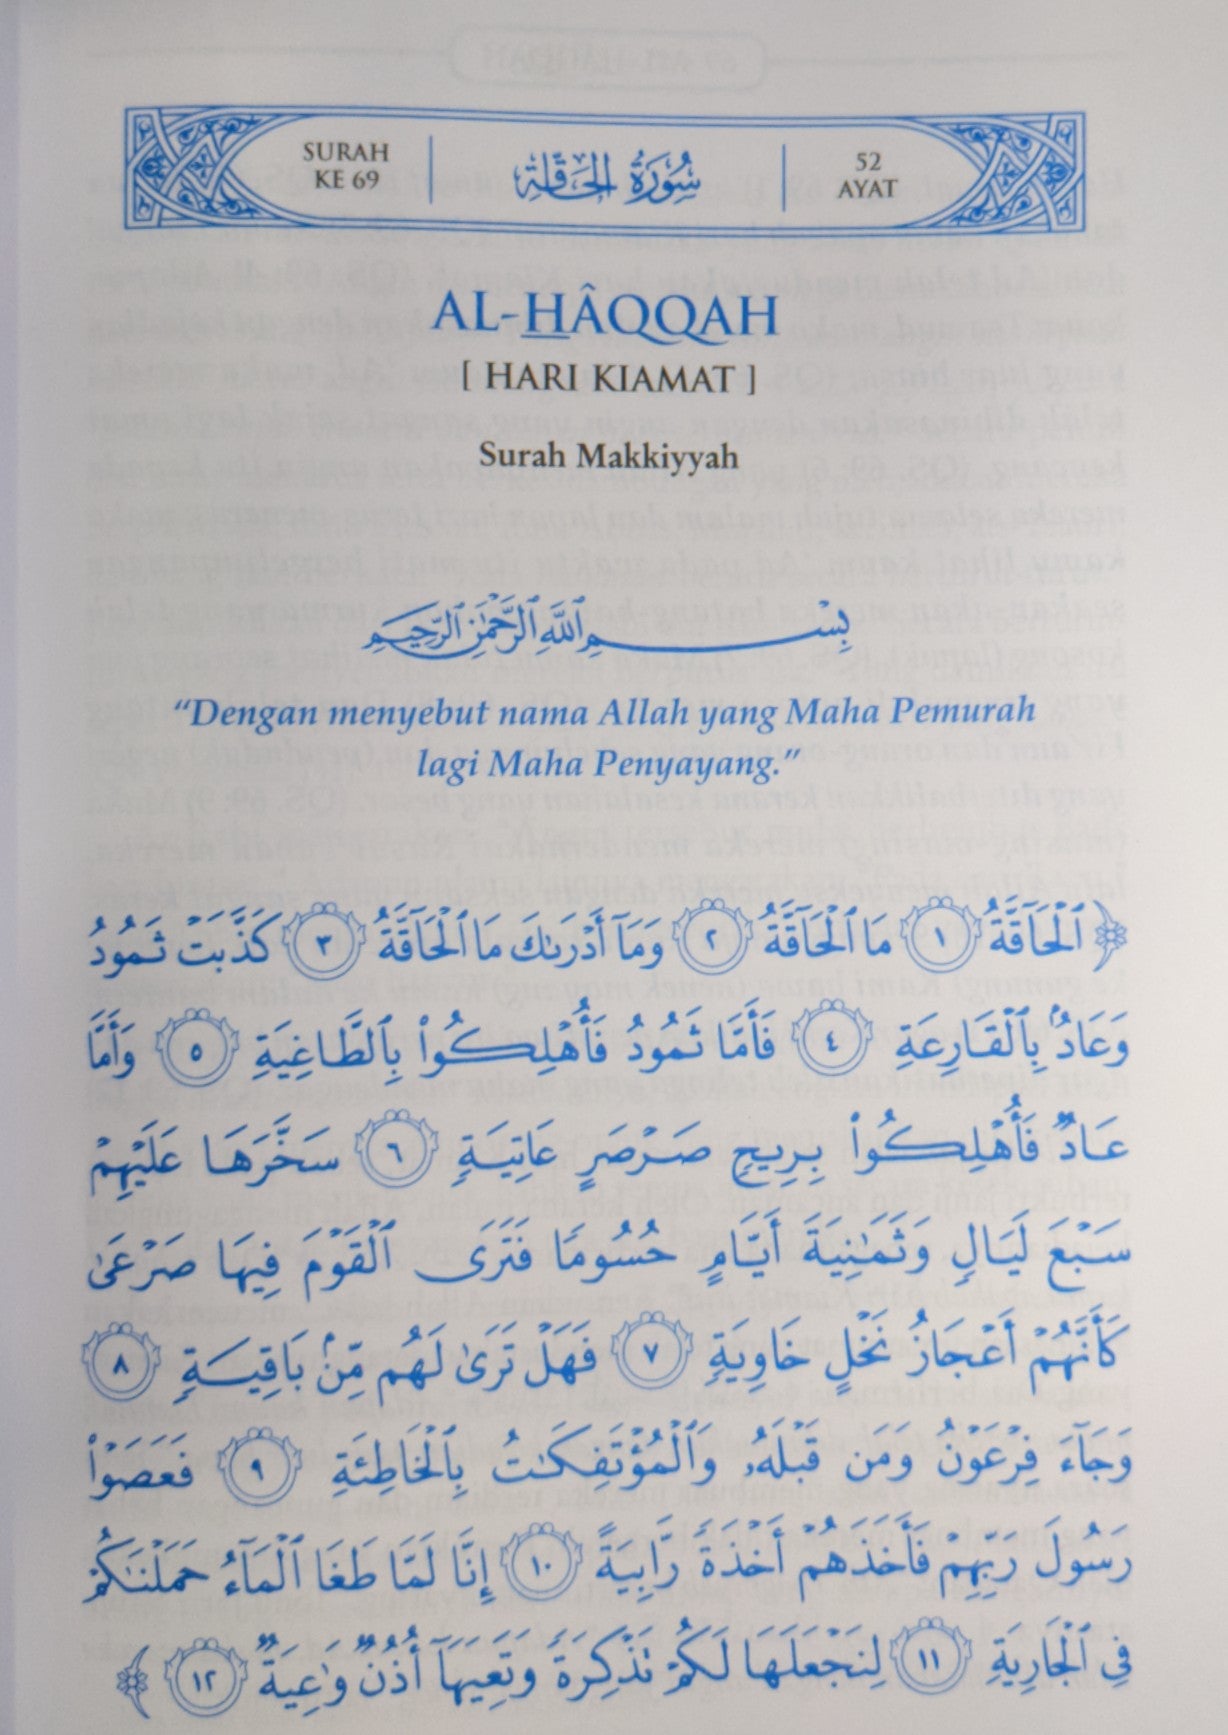 SURAH KE 69
سُورَةُ الْحَاقَّةِ
52 AYAT
AL-HÂQQAH
[ HARI KIAMAT ]
Surah Makkiyyah
بِسْمِ ٱللَّهِ ٱلرَّحْمَٰنِ ٱلرَّحِيمِ
“Dengan menyebut nama Allah yang Maha Pemurah
lagi Maha Penyayang.”
﴿ ٱلْحَآقَّةُ ١ مَا ٱلْحَآقَّةُ ٢ وَمَآ أَدْرَىٰكَ مَا ٱلْحَآقَّةُ ٣ كَذَّبَتْ ثَمُودُ
وَعَادٌۢ بِٱلْقَارِعَةِ ٤ فَأَمَّا ثَمُودُ فَأُهْلِكُوا۟ بِٱلطَّاغِيَةِ ٥ وَأَمَّا
عَادٌ فَأُهْلِكُوا۟ بِرِيحٍ صَرْصَرٍ عَاتِيَةٍ ٦ سَخَّرَهَا عَلَيْهِمْ
سَبْعَ لَيَالٍ وَثَمَٰنِيَةَ أَيَّامٍ حُسُومًا فَتَرَى ٱلْقَوْمَ فِيهَا صَرْعَىٰ
كَأَنَّهُمْ أَعْجَازُ نَخْلٍ خَاوِيَةٍ ٧ فَهَلْ تَرَىٰ لَهُم مِّنۢ بَاقِيَةٍ ٨
وَجَآءَ فِرْعَوْنُ وَمَن قَبْلَهُۥ وَٱلْمُؤْتَفِكَٰتُ بِٱلْخَاطِئَةِ ٩ فَعَصَوْا۟
رَسُولَ رَبِّهِمْ فَأَخَذَهُمْ أَخْذَةً رَّابِيَةً ١٠ إِنَّا لَمَّا طَغَا ٱلْمَآءُ حَمَلْنَٰكُمْ
فِى ٱلْجَارِيَةِ ١١ لِنَجْعَلَهَا لَكُمْ تَذْكِرَةً وَتَعِيَهَآ أُذُنٌ وَٰعِيَةٌ ١٢ ﴾